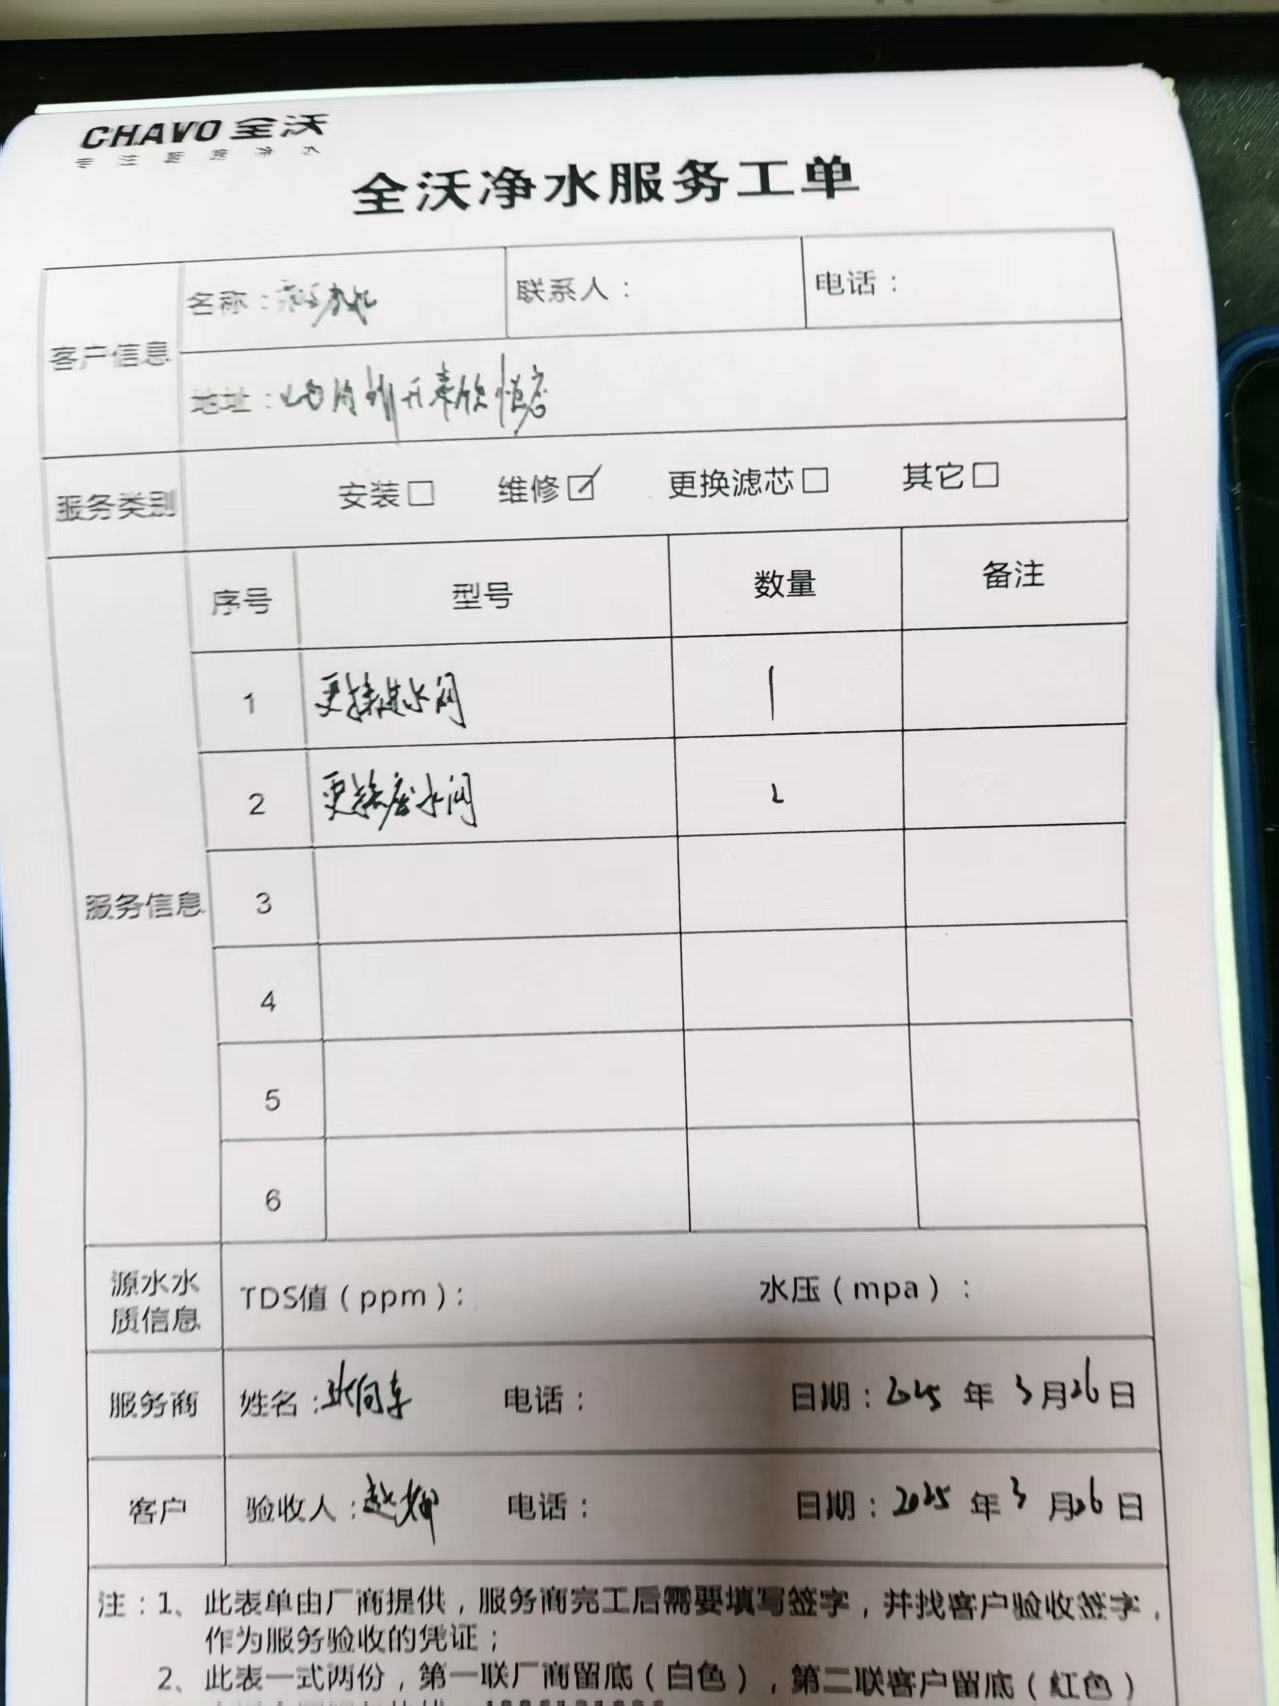 CHAVO 全沃
全沃净水服务工单
客户信息
名称：
联系人：
电话：
地址：
服务类别
安装□ 维修☑ 更换滤芯□ 其它□
服务信息
序号 型号 数量 备注
1 更换进水阀 1
2 更换废水阀 2
3
4
5
6
源水水质信息
TDS值（ppm）： 水压（mpa）：
服务商 姓名：张向东 电话： 日期：2025 年 3 月 26 日
客户 验收人：赵娜 电话： 日期：2025 年 3 月 26 日
注：1、此表单由厂商提供，服务商完工后需要填写签字，并找客户验收签字，
作为服务验收的凭证；
2、此表一式两份，第一联厂商留底（白色），第二联客户留底（红色）